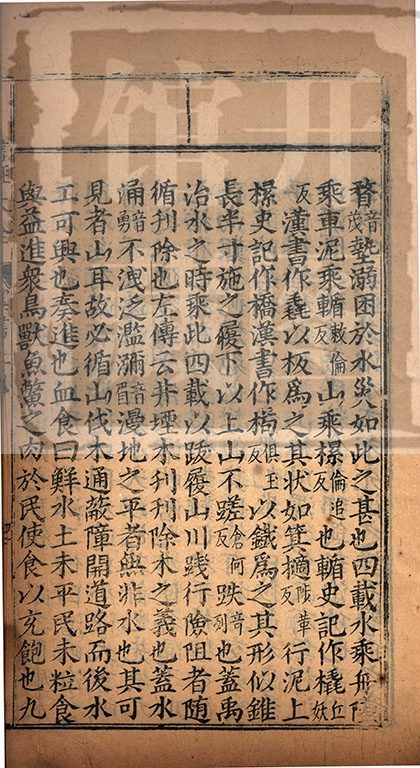 瞀音茂墊溺困於水災如此之甚也四載水乘舟陸
乘車泥乘輴敕倫反山乘樏倫追反也輴史記作橇丘妖
反漢書作毳以板爲之其狀如箕擿陟革反行泥上
樏史記作橋漢書作梮俱玉反以鐵爲之其形似錐
長半寸施之履下以上山不蹉倉何反跌音列也蓋禹
治水之時乘此四載以跋履山川踐行險阻者隨
循刊除也左傳云井堙木刊刊除木之義也蓋水
涌音勇不洩泛濫瀰音眉漫地之平者無非水也其可
見者山耳故必循山伐木通蔽障開道路而後水
工可興也奏進也血食曰鮮水土未平民未粒食
與益進衆鳥獸魚鱉之肉於民使食以充飽也九